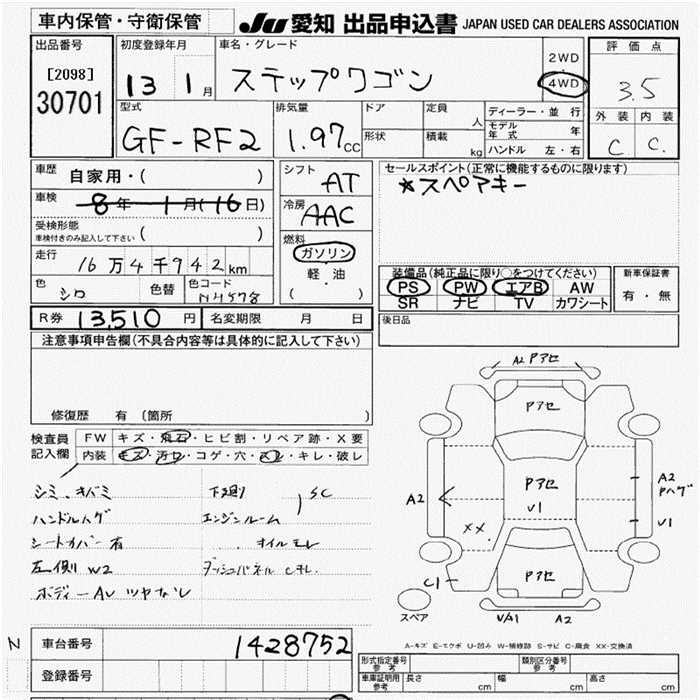 車内保管・守衛保管
JU 愛知 出品申込書 JAPAN USED CAR DEALERS ASSOCIATION
出品番号
[2098]
30701
初度登録年月
13 1 月
車名・グレード
ステップワゴン
2WD
4WD
評価点
3.5
外装 内装
C C.
型式
GF-RF2
排気量
1.97 CC
ドア
形状
定員
人
積載
kg
ディーラー・並行
モデル年式 年
ハンドル 左・右
車歴
自家用・( )
車検
8年 1月(16日)
受検形態
車検付きのみ記入して下さい ( )
走行
16万4千942km
色
シロ
色替
色コード
シフト
AT
冷房
AAC
燃料
ガソリン
軽・油
( )
セールスポイント(正常に機能するものに限ります)
*スペアキー
装備品(純正品に限り○をつけてください)
PS PW エアB AW
SR ナビ TV カワシート
新車保証書
有・無
R券 13,510 円
名変期限 月 日
後日品
注意事項申告欄(不具合内容等は具体的に記入して下さい)
修復歴 有 (箇所 )
検査員記入欄
FW キズ・飛石・ヒビ割・リペア跡・X要
内装 キズ・汚レ・コゲ・穴・スレ・キレ・破レ
シミ、キバミ
ハンドルハゲ
シートカバー有
左側 W2
ボディーAU ツヤなし
下廻り
エンジンルーム
SC
オイルモレ
ダッシュパネル Cキレ
A2 Pアセ
Pアセ
Pアセ
V1
A2
XX
A2
Pハゲ
V1
Pアセ
C1
V/A1 A2
スペア
A-キズ E-エクボ U-凹み W-補修跡 S-サビ C-腐食 XX-交換済
N
車台番号
1428752
登録番号
形式指定番号 参考
類別区分番号 参考
車庫証明用 参考
長さ cm
幅 cm
高さ cm